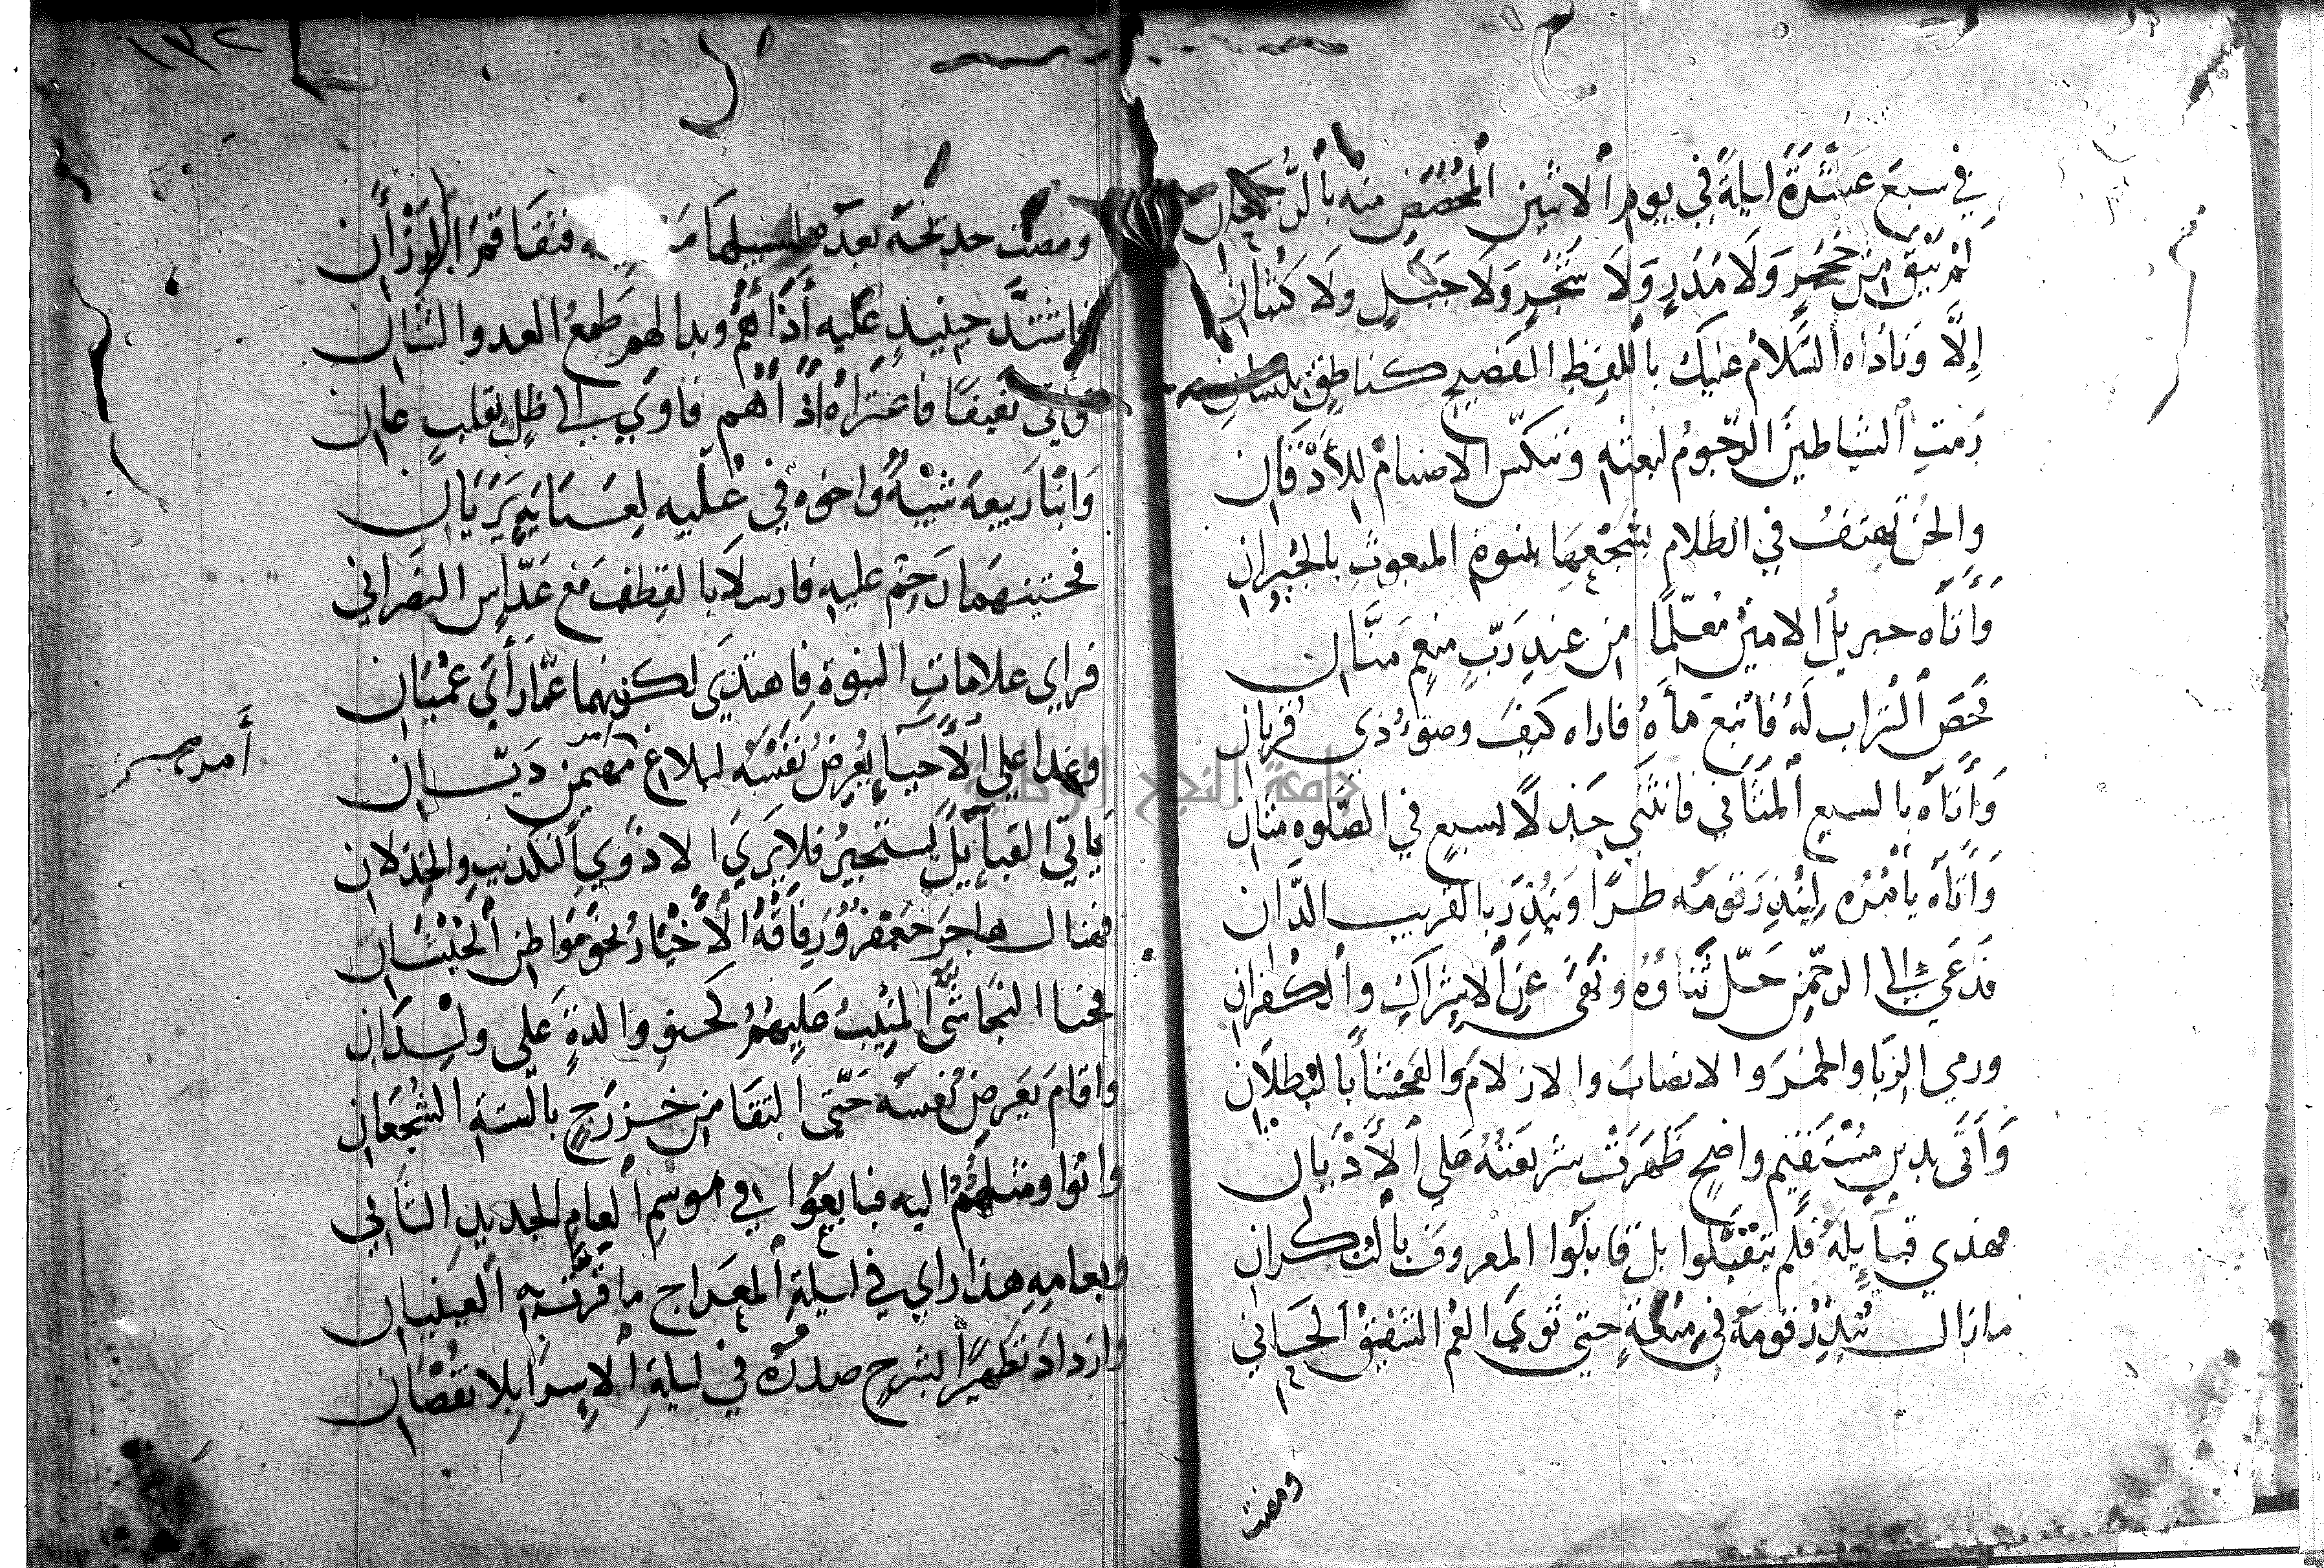 في سبع عشرة ليلة في يوم الاثنين المخصص منه بالرجحان
لم يبق من حجر ولا مدر ولا شجر ولا جبل ولا كثبان
إلا وناداه السلام عليك باللفظ الفصيح كناطق بلسان
رمت الشياطين الرجوم لبعثه وتنكس الاصنام للأذقان
والجن تهتف في الظلام بسجعها بنبوة المبعوث بالجيران
وأتاه جبريل الامين معلما من عند رب منعم منان
فحص التراب له فانبع مأه فاراه كيف وضوء ذي قربان
وأتاه بالسبع المثاني فانثني جذلا لسبع في الصلوه مثان
وأتاه يأمره لينذر قومه طرا وينذر بالقريب الدان
فدعي الي الرحمن جل ثناؤه ونهى عن الاشراك والكفران
ورمي الربا والخمر والانصاب والازلام والفحشا بالبطلان
وأتى بدين مستقيم واضح ظهرت شريعته علي الأديان
فهدي قبايله فلم يتقبلوا بل قابلوا المعروف بالنكران
مازال ينذر قومه في مكة حتي ثوي العم الشفيق الحاني
ومضت
١٣٢
ومضت خديجة بعد فثقا قمر الورأن
فاشتد حينيذ عليه أذاهم وبدا لهم طمع العدو الشان
فأتى ثقيفا فاعتراه اذاهم فاوي الي ظل بقلب عان
وابنا ربيعة شيبة واخوه في علية لعنائه يريان
فحنتهما رحم عليه فارسلا بالقطف مع عداس النصراني
فراي علامات النبوة فاهتدي لكنهما عما رأي عميان
وغدا علي الأحيا يعرض نفسه لبلاغ مهيمن ديان
يأتي القبايل يستجير فلا يري الا ذوي التكذيب والخذلان
فهنال هاجر جعفر ورفاقه الأخيار نحو مواطن الحبشان
فحنا النجاشي المنيب عليهم كحنو والدة علي ولدان
واقام يعرض نفسه حتى التقا من خزرج بالستة الشجعان
واتوا ومثلهم اليه فبايعوا في موسم العام الجديد الثاني
وبعامه هذا راي في ليلة المعراج ما قرت به العينان
وازداد تطهيرا بشرح صدره في ليلة الاسرا بلا نقصان